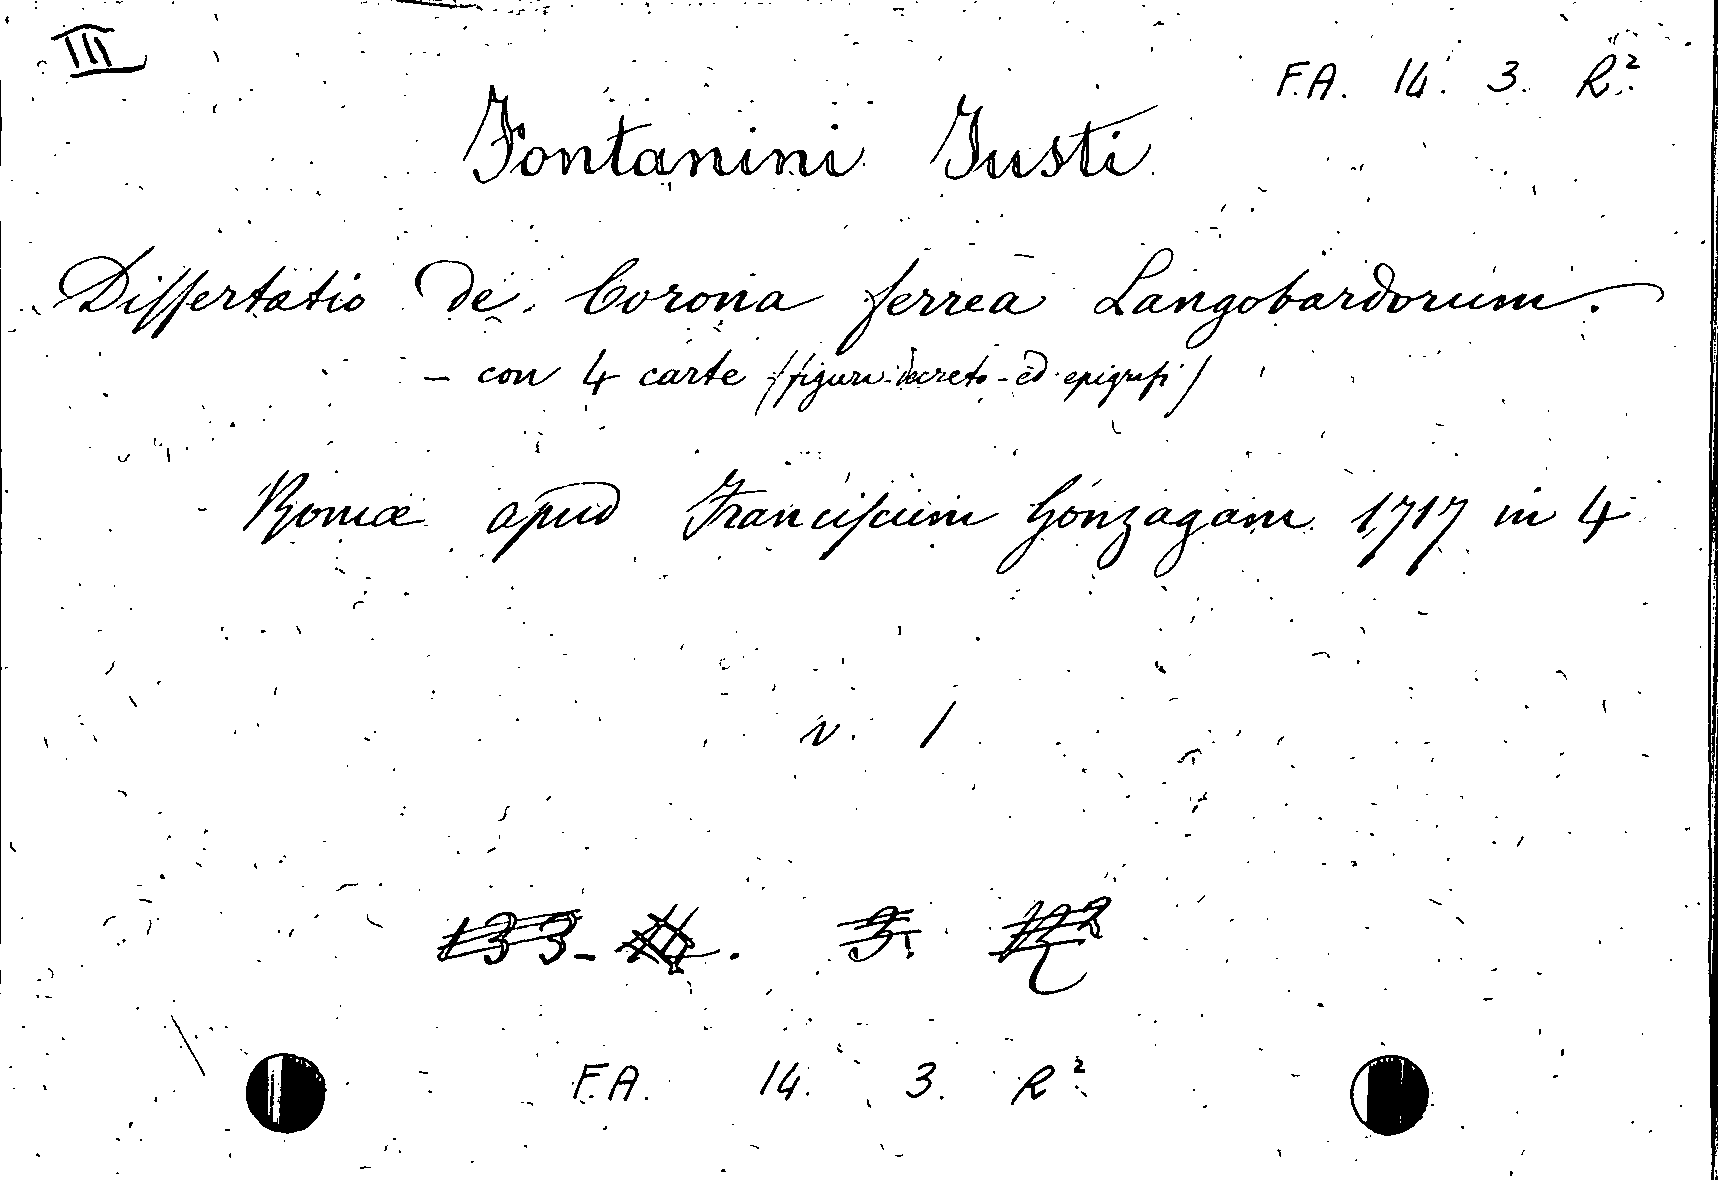 III
F.A. 14. 3. R².
Fontanini Justi
Dissertatio de Corona ferrea Langobardorum.
- con 4 carte (figure-decreto-ed epigrafi)
Romæ apud Franciscum Gonzagam 1717 in 4
v. 1
133-
3.
F.A. 14. 3. R²